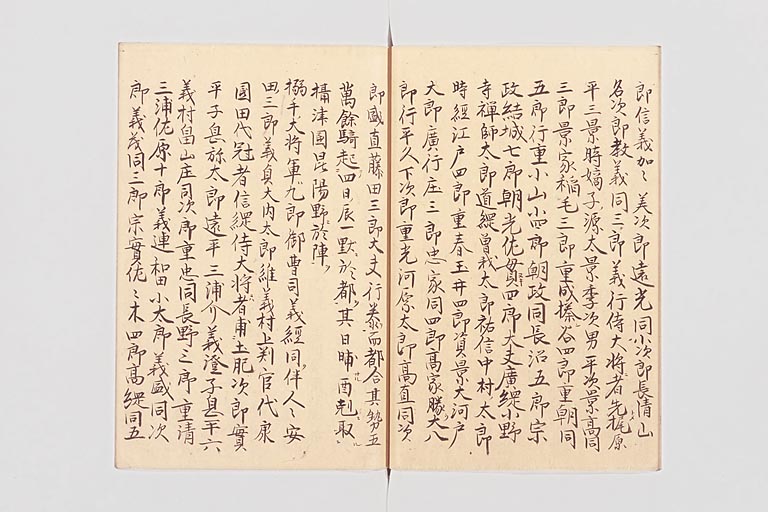 郎信義加々美次郎遠光同小次郎長清山
名次郎教義同三郎義行侍大将者先梶原
平三景時嫡子源太景季次男平次景高同
三郎景家稲毛三郎重成榛谷四郎重朝同
五郎行重小山小四郎朝政同長沼五郎宗
政結城七郎朝光佐貫四郎大夫廣縄小野
寺禅師太郎道縄曽我太郎祐信中村太郎
時經江戸四郎重春玉井四郎資景大河戸
太郎廣行庄三郎忠家同四郎高家勝大八
郎行平久下次郎重光河原太郎高直同次
郎盛直藤田三郎大夫行泰而都合其勢五
萬餘騎起四日辰一點於都其日晡酉剋取
攝津國昆陽野於陣
搦手大将軍九郎御曹司義經同伴人々安
田三郎義貞大内太郎維義村上判官代康
國田代冠者信縄侍大将者甫土肥次郎實
平子息弥太郎遠平三浦介義澄子息平六
義村畠山庄司次郎重忠同長野三郎重清
三浦佐原十郎義連和田小太郎義盛同次
郎義茂同三郎宗實佐々木四郎高縄同五